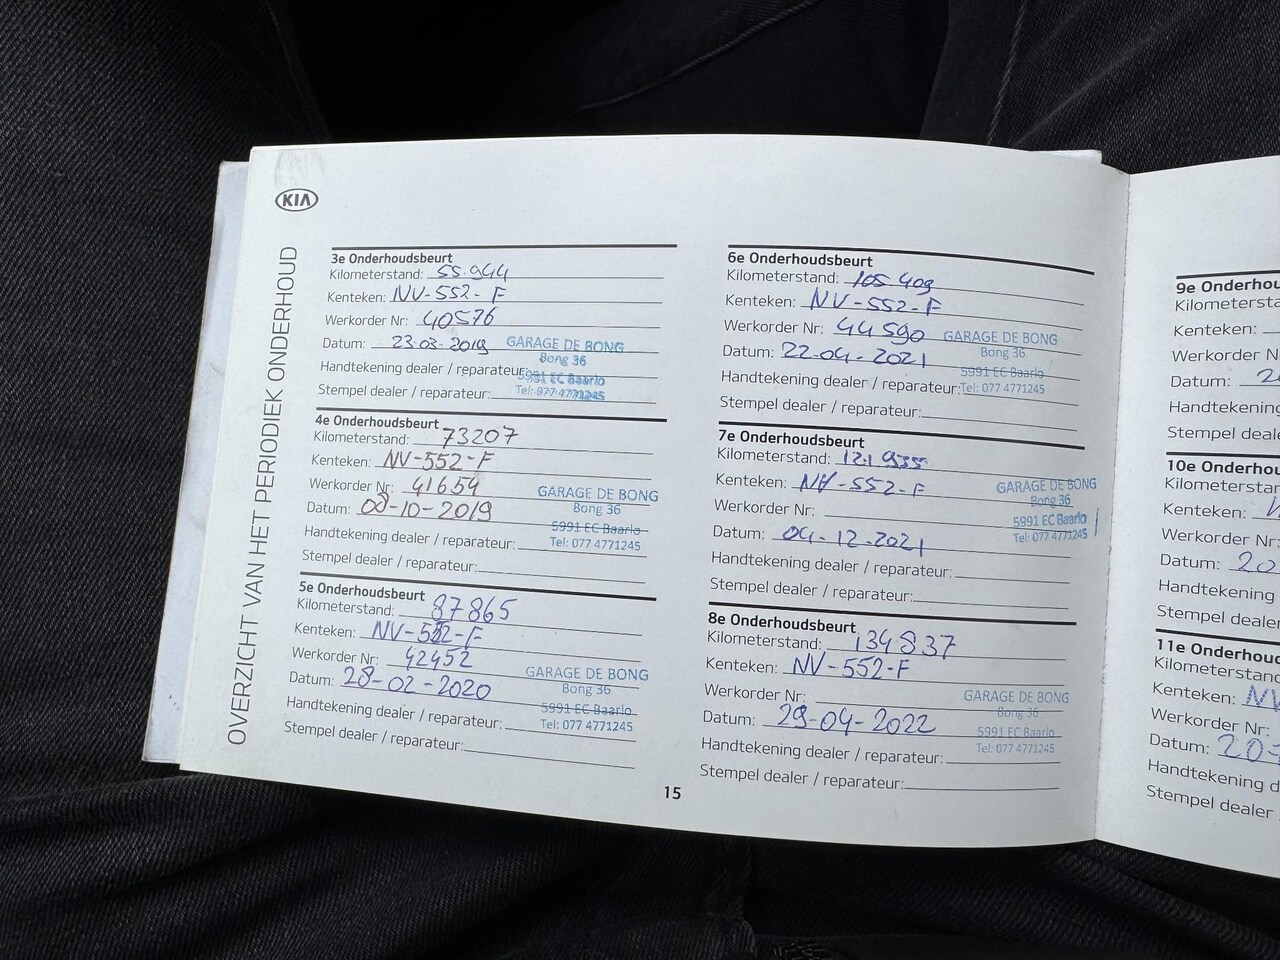 KIA
OVERZICHT VAN HET PERIODIEK ONDERHOUD
3e Onderhoudsbeurt
Kilometerstand: 55.944
Kenteken: NV-552-F
Werkorder Nr: 40576
Datum: 23-03-2019
Handtekening dealer / reparateur:
Stempel dealer / reparateur:
GARAGE DE BONG
Bong 36
5991 EC Baarlo
Tel: 077 4771245
4e Onderhoudsbeurt
Kilometerstand: 73207
Kenteken: NV-552-F
Werkorder Nr: 41654
Datum: 08-10-2019
Handtekening dealer / reparateur:
Stempel dealer / reparateur:
GARAGE DE BONG
Bong 36
5991 EC Baarlo
Tel: 077 4771245
5e Onderhoudsbeurt
Kilometerstand: 87865
Kenteken: NV-552-F
Werkorder Nr: 42452
Datum: 28-02-2020
Handtekening dealer / reparateur:
Stempel dealer / reparateur:
GARAGE DE BONG
Bong 36
5991 EC Baarlo
Tel: 077 4771245
6e Onderhoudsbeurt
Kilometerstand: 105 409
Kenteken: NV-552-F
Werkorder Nr: 44590
Datum: 22-04-2021
Handtekening dealer / reparateur:
Stempel dealer / reparateur:
GARAGE DE BONG
Bong 36
5991 EC Baarlo
Tel: 077 4771245
7e Onderhoudsbeurt
Kilometerstand: 121 935
Kenteken: NV-552-F
Werkorder Nr:
Datum: 04-12-2021
Handtekening dealer / reparateur:
Stempel dealer / reparateur:
GARAGE DE BONG
Bong 36
5991 EC Baarlo
Tel: 077 4771245
8e Onderhoudsbeurt
Kilometerstand: 134837
Kenteken: NV-552-F
Werkorder Nr:
Datum: 29-04-2022
Handtekening dealer / reparateur:
Stempel dealer / reparateur:
GARAGE DE BONG
Bong 36
5991 EC Baarlo
Tel: 077 4771245
15
9e
Kenteken:
Werkorder
Datum:
Handtekening
Stempel
10e
Kenteken:
Werkorder Nr:
Datum: 20
Handtekening
Stempel dealer
11e
Kilometerstand
Kenteken: NV
Werkorder Nr:
Datum: 20-
Handtekening
Stempel dealer